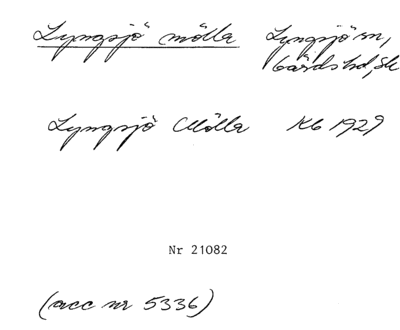 Lyngsjö mölla Lyngsjö sn,
Gärds hd, Sk
Lyngsjö Mölla Kb 1929
Nr 21082
(acc nr 5336)